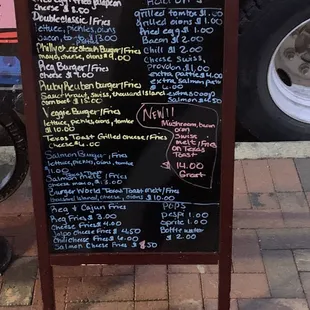 cheese $
Double classic / Fries
lettuce, pickles, onions
bacon, tomato
Philly Burger / Fries
mayo, cheese, onions $
Reg Burger / Fries
cheese $ 9.00
Ruby Reuben Burger / Fries
Saurkraut, Swiss, thousand Island
corn beef $ 15.00
Veggie Burger / Fries
lettuce, pickles, onions, tomato
$ 10.00
Texas Toast Grilled cheese / Fries
cheese
Salmon Burger / Fries
lettuce, pickles, onions, tomato
11.00
Salmon melt / Fries
cheese mayo, $ 13.00
Burger World Texas Toast melt / Fries
thousand Island, cheese, onions $ 10.00
Reg & Cajun Fries
Reg Fries $ 3.00
Cheese Fries $ 4.00
Jalapo Cheese Fries $ 4.50
Chili cheese Fries $ 6.00
Salmon Cheese Fries $ 8.50
grilled tomatoes $ 1.00
grilled onions $ 1.00
fried egg $ 1.00
Bacon $ 2.00
Chili $ 2.00
Cheese Swiss,
provolon $ 1.00
extra patties $ 4.00
extra salmon pattie
Salmon $ 4.50
New!!
Mushroom, bacon
onion
Swiss
melt / Fries
on Texas
Toast
$ 14.00
Great
POPS
pespi $ 1.00
sprite $ 1.00
Bottle water
$ 2.00